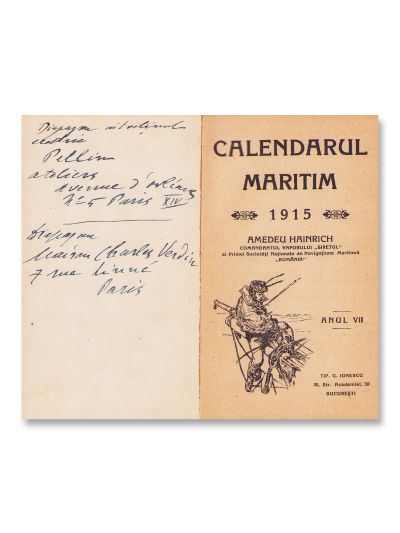 Pellin
ateliers
Avenue d'orléans
Paris XIV
Maison Charles Verdin
7 rue Linné
Paris
CALENDARUL
MARITIM
1915
AMEDEU HAINRICH
COMANDANTUL VAPORULUI „SIRETUL"
al Primei Societăți Naționale de Navigațiune Maritimă
„ROMÂNIA"
ANUL VII
TIP. C. IONESCU
30, Str. Academiei, 30
BUCUREȘTI